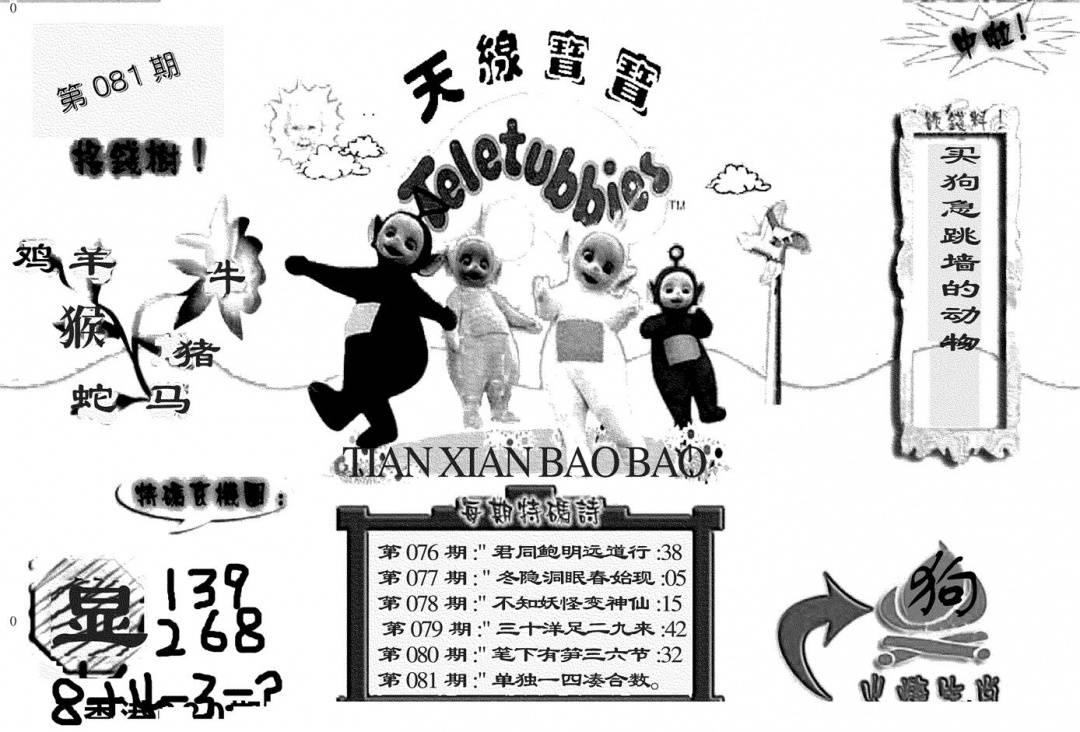 0
第 081 期
中啦！
天線寶寶
Teletubbies
TM
摇錢樹！
鸡 羊
牛
猴
猪
蛇 马
买狗急跳墙的动物
TIAN XIAN BAO BAO
每期特碼詩
第 076 期 :" 君同鲍明远道行 :38
第 077 期 :" 冬隐洞眠春始现 :05
第 078 期 :" 不知妖怪变神仙 :15
第 079 期 :" 三十洋足二九来 :42
第 080 期 :" 笔下有笋三六节 :32
第 081 期 :" 单独一四凑合数。
0
139
268
狗